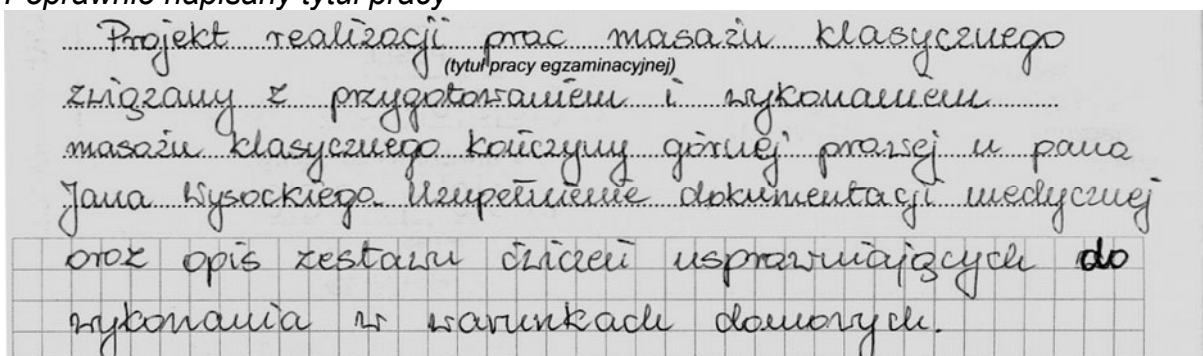 Poprawnie napisany tytuł pracy
Projekt realizacji prac masażu klasycznego
(tytuł pracy egzaminacyjnej)
związany z przygotowaniem i wykonaniem
masażu klasycznego kończyny górnej prawej u pana
Jana Wysockiego. Uzupełnienie dokumentacji medycznej
oraz opis zestawu ćwiczeń usprawniających do
wykonania w warunkach domowych.